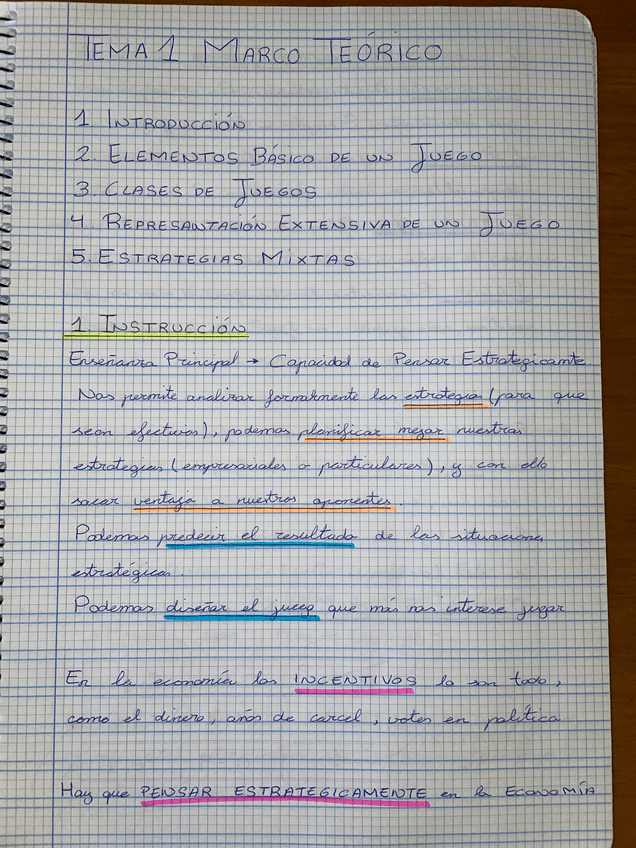 TEMA 1 MARCO TEÓRICO
1. INTRODUCCIÓN
2. ELEMENTOS BÁSICO DE UN JUEGO
3. CLASES DE JUEGOS
4. REPRESANTACIÓN EXTENSIVA DE UN JUEGO
5. ESTRATEGIAS MIXTAS
1. INSTRUCCIÓN
Enseñanza Principal → Capacidad de Pensar Estrategicamte
Nos permite analizar formalmente las estrategias (para que
sean efectivas), podemos planificar mejor nuestras
estrategias (empresariales o particulares), y con ello
sacar ventaja a nuestros oponentes.
Podemos predecir el resultado de las situaciones
estratégicas.
Podemos diseñar el juego que más nos interese jugar
En la economía los INCENTIVOS lo son todo,
como el dinero, años de carcel, votos en política
Hay que PENSAR ESTRATEGICAMENTE en la ECONOMÍA